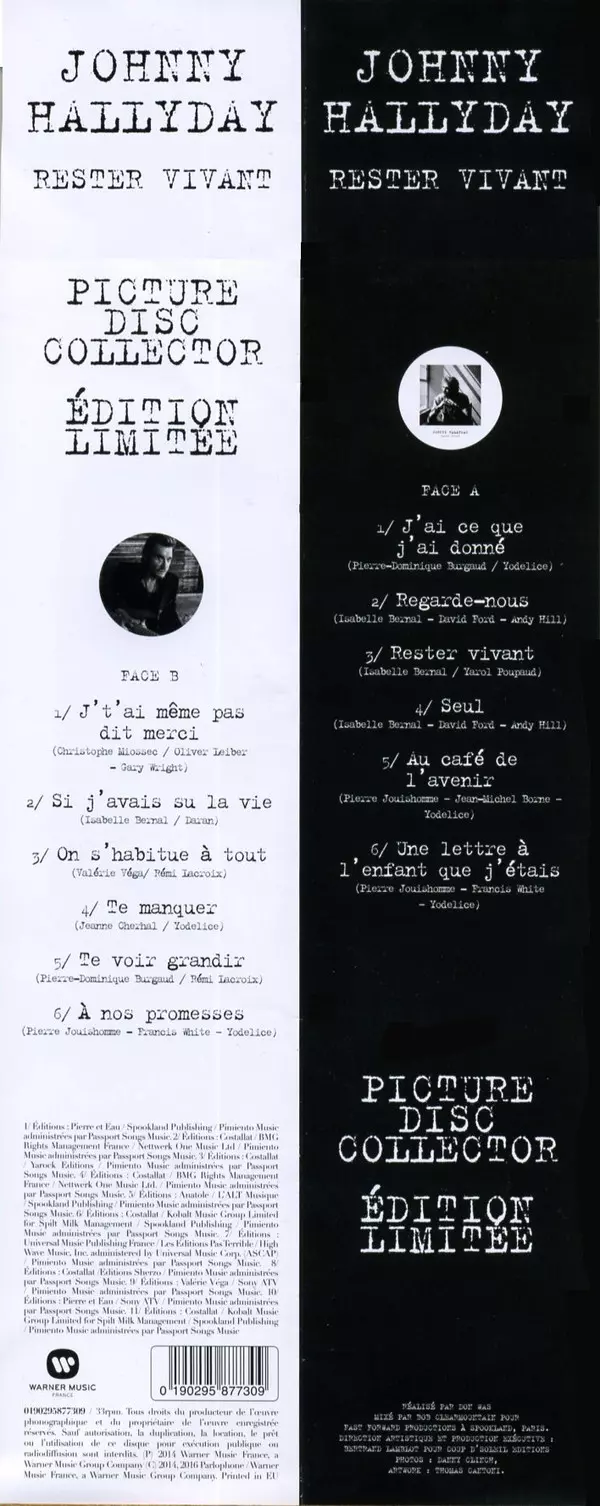 JOHNNY
HALLYDAY
RESTER VIVANT
PICTURE
DISC
COLLECTOR
ÉDITION
LIMITÉE
FACE B
1/ J't'ai même pas
dit merci
(Christophe Miossec / Oliver Leiber
- Gary Wright)
2/ Si j'avais su la vie
(Isabelle Bernal / Daran)
3/ On s'habitue à tout
(Valérie Véga/ Rémi Lacroix)
4/ Te manquer
(Jeanne Cherhal / Yodelice)
5/ Te voir grandir
(Pierre-Dominique Burgaud / Rémi Lacroix)
6/ À nos promesses
(Pierre Jouishomme - Francis White - Yodelice)
1/ Éditions : Pierre et Eau / Spookland Publishing / Pimiento Music
administrées par Passport Songs Music. 2/ Éditions : Costallat / BMG
Rights Management France / Nettwerk One Music Ltd / Pimiento
Music administrées par Passport Songs Music. 3/ Éditions : Costallat
/ Yarock Editions / Pimiento Music administrées par Passport
Songs Music. 4/ Éditions : Costallat / BMG Rights Management
France / Nettwerk One Music Ltd. / Pimiento Music administrées
par Passport Songs Music. 5/ Éditions : Anatole / L'ALT Musique
/ Spookland Publishing / Pimiento Music administrées par Passport
Songs Music. 6/ Éditions : Costallat / Kobalt Music Group Limited
for Spilt Milk Management / Spookland Publishing / Pimiento
Music administrées par Passport Songs Music. 7/ Éditions :
Universal Music Publishing France / Les Editions Pas Terrible / High
Wave Music, Inc. administered by Universal Music Corp. (ASCAP)
/ Pimiento Music administrées par Passport Songs Music. 8/
Éditions : Costallat /Editions Sherzo / Pimiento Music administrées
par Passport Songs Music. 9/ Éditions : Valérie Véga / Sony ATV
/ Pimiento Music administrées par Passport Songs Music. 10/
Éditions : Pierre et Eau / Sony ATV / Pimiento Music administrées
par Passport Songs Music. 11/ Éditions : Costallat / Kobalt Music
Group Limited for Spilt Milk Management / Spookland Publishing
/ Pimiento Music administrées par Passport Songs Music
WARNER MUSIC
FRANCE
0 190295 877309
0190295877309 / 33rpm. Tous droits du producteur de l'œuvre
phonographique et du propriétaire de l'œuvre enregistrée
réservés. Sauf autorisation, la duplication, la location, le prêt
ou l'utilisation de ce disque pour exécution publique ou
radiodiffusion sont interdits. (P) 2014 Warner Music France, a
Warner Music Group Company (C) 2014, 2016 Parlophone / Warner
Music France, a Warner Music Group Company. Printed in EU
JOHNNY
HALLYDAY
RESTER VIVANT
FACE A
1/ J'ai ce que
j'ai donné
(Pierre-Dominique Burgaud / Yodelice)
2/ Regarde-nous
(Isabelle Bernal - David Ford - Andy Hill)
3/ Rester vivant
(Isabelle Bernal / Yarol Poupaud)
4/ Seul
(Isabelle Bernal - David Ford - Andy Hill)
5/ Au café de
l'avenir
(Pierre Jouishomme - Jean-Michel Borne -
Yodelice)
6/ Une lettre à
l'enfant que j'étais
(Pierre Jouishomme - Francis White
- Yodelice)
PICTURE
DISC
COLLECTOR
ÉDITION
LIMITÉE
RÉALISÉ PAR DON WAS
MIXÉ PAR BOB CLEARMOUNTAIN POUR
FAST FORWARD PRODUCTIONS À SPOOKLAND, PARIS.
DIRECTION ARTISTIQUE ET PRODUCTION EXÉCUTIVE :
BERTRAND LAMBLOT POUR COUP D'SOLEIL EDITIONS
PHOTOS : DANNY CLINCH,
ARTWORK : THOMAS CAETONI.